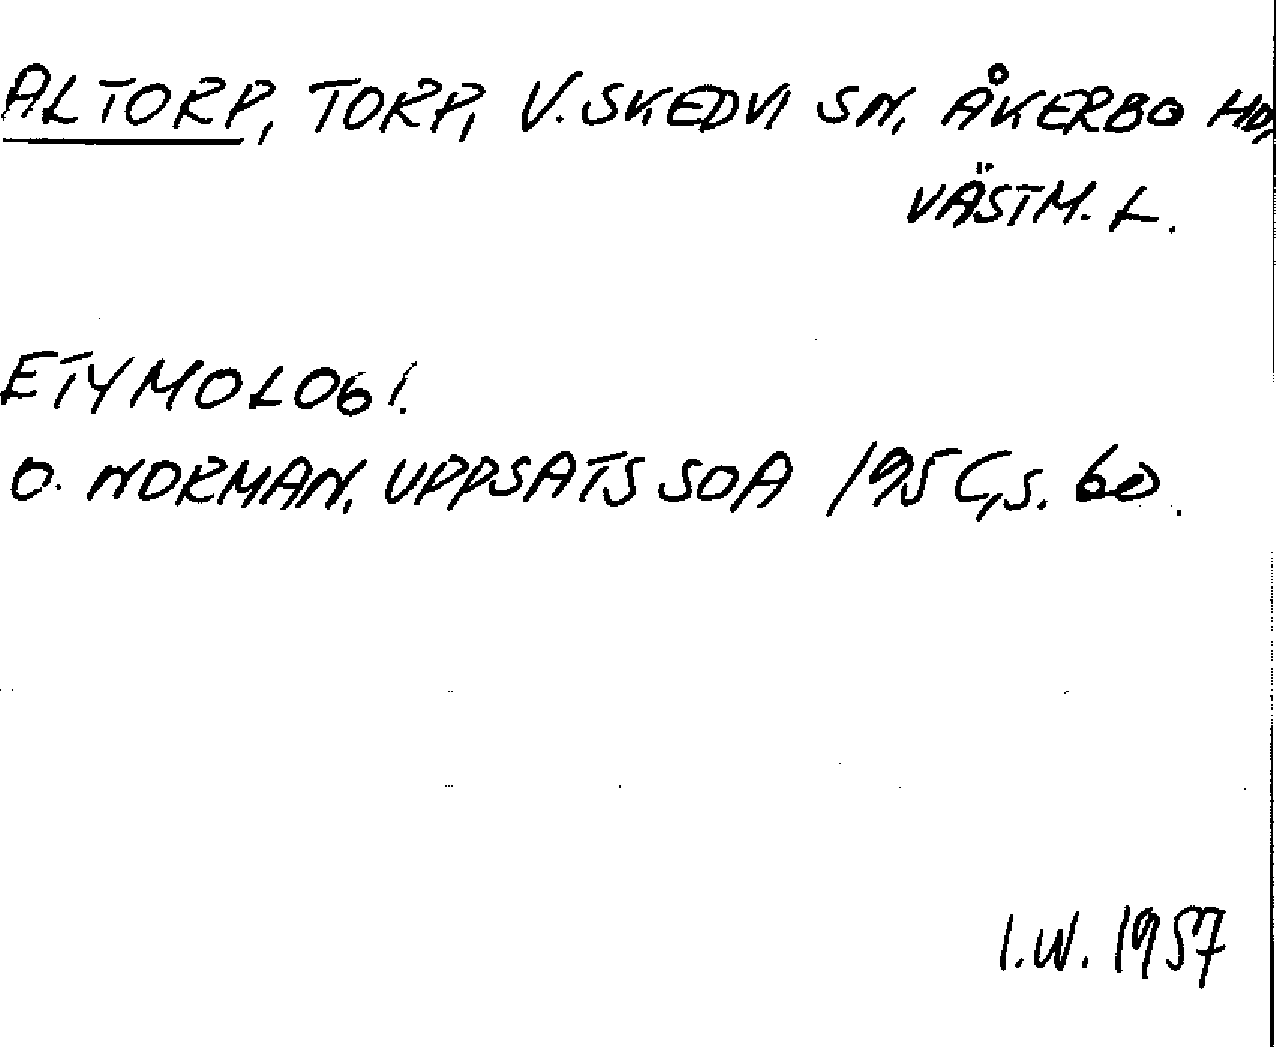 ALTORP, TORP, V. SKEDVI SN, ÅKERBO HD,
VÄSTM. L.
ETYMOLOGI.
O. NORMAN, UPPSATS SOA s. 60.
I.W. 1957